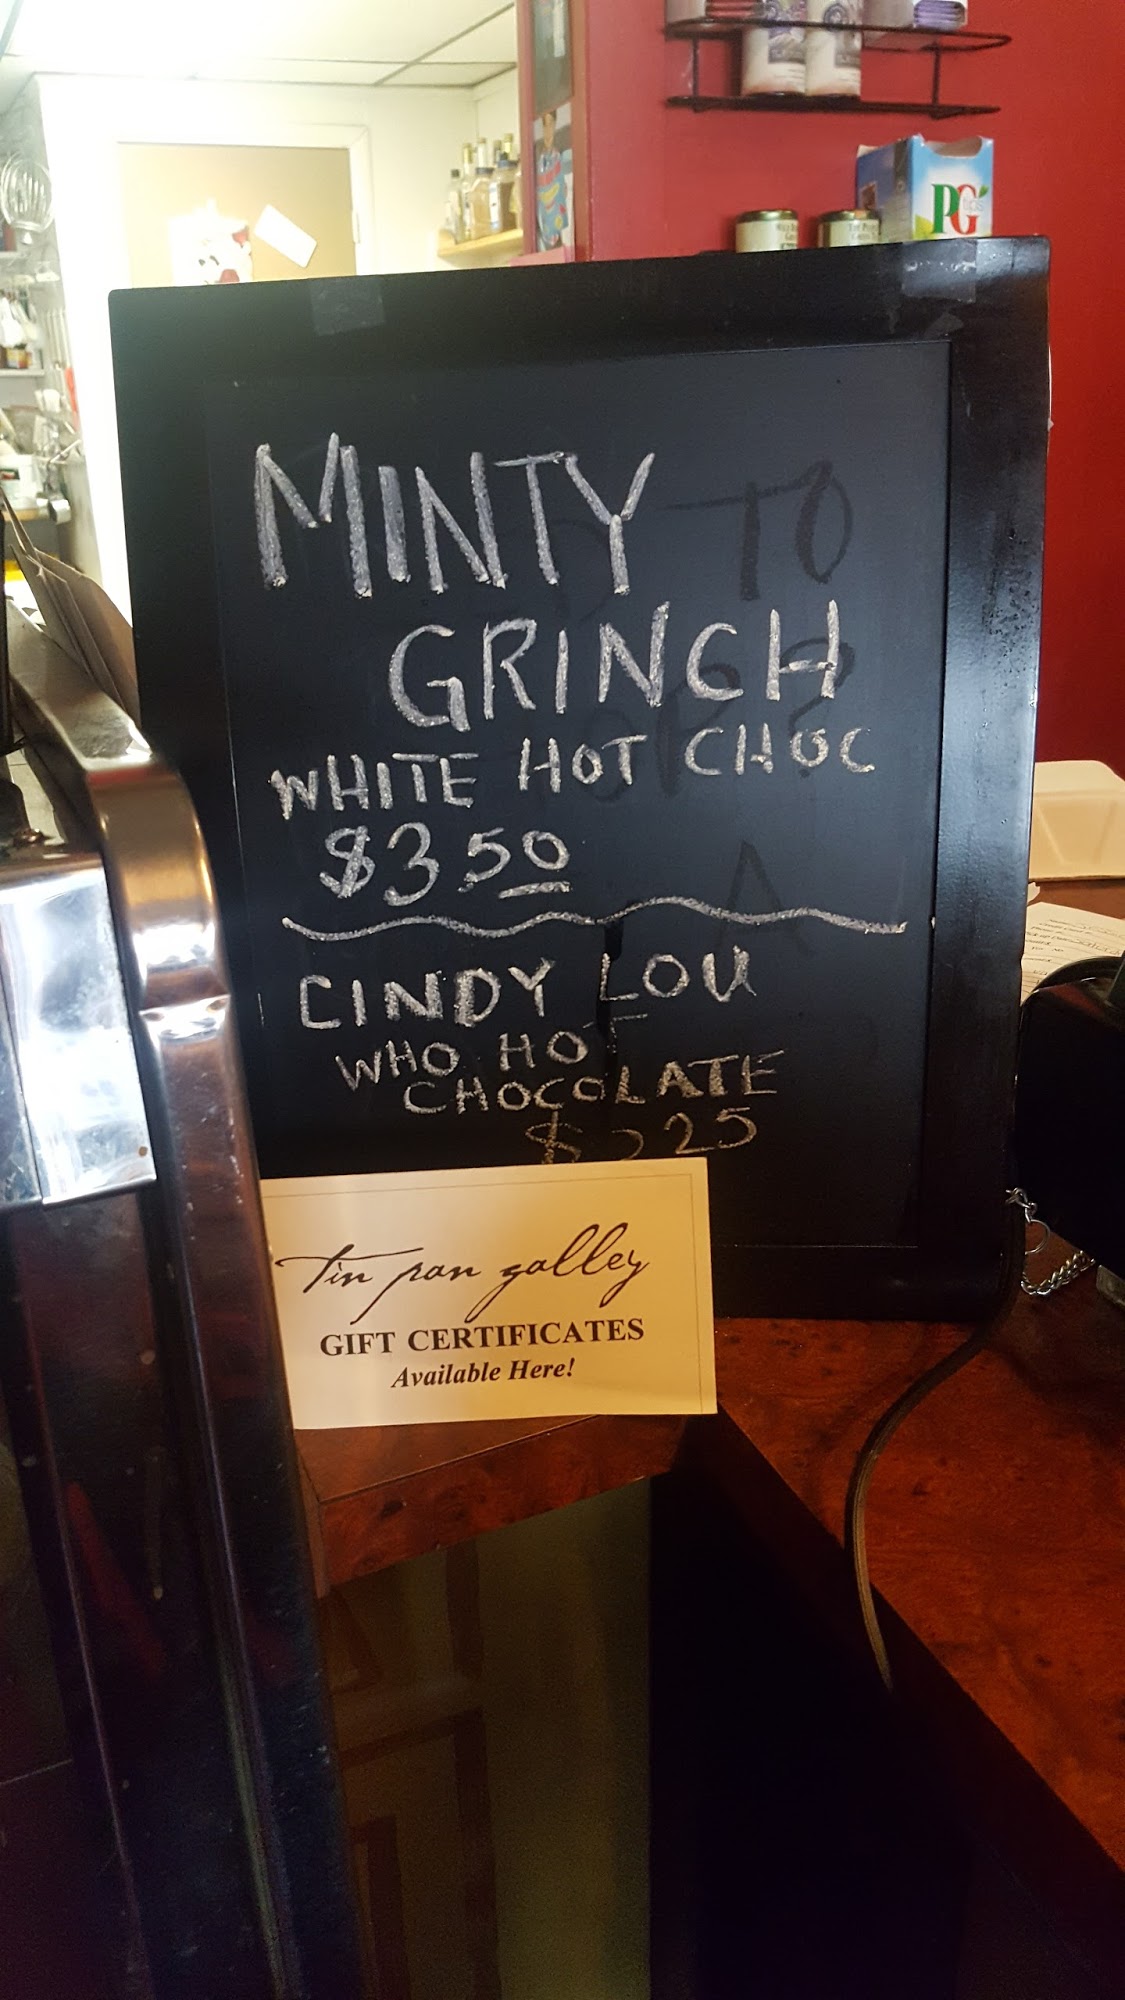 PG
tips
MINTY
GRINCH
WHITE HOT CHOC
$3.50
CINDY LOU
WHO HOT
CHOCOLATE
tin pan galley
GIFT CERTIFICATES
Available Here!